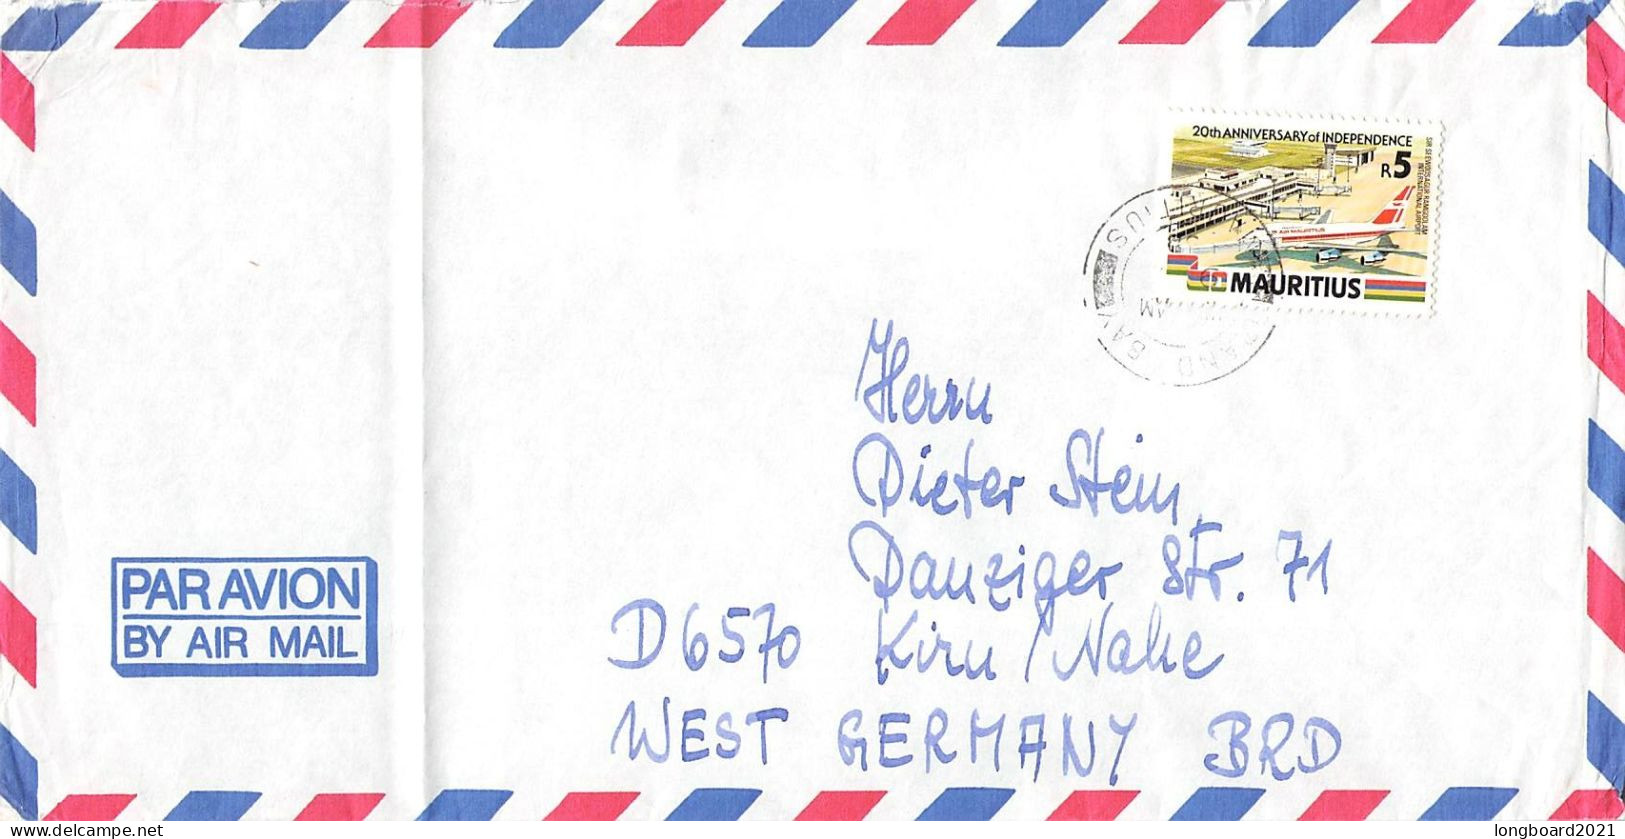 20th ANNIVERSARY of INDEPENDENCE
R5
SIR SEEWOOSAGUR RAMGOOLAM
INTERNATIONAL AIRPORT
AIR MAURITIUS
MAURITIUS
AM
Herrn
Dieter Stein
Danziger Str. 71
D6570 Kirn/Nahe
WEST GERMANY BRD
PAR AVION
BY AIR MAIL
delcampe.net
longboard2021